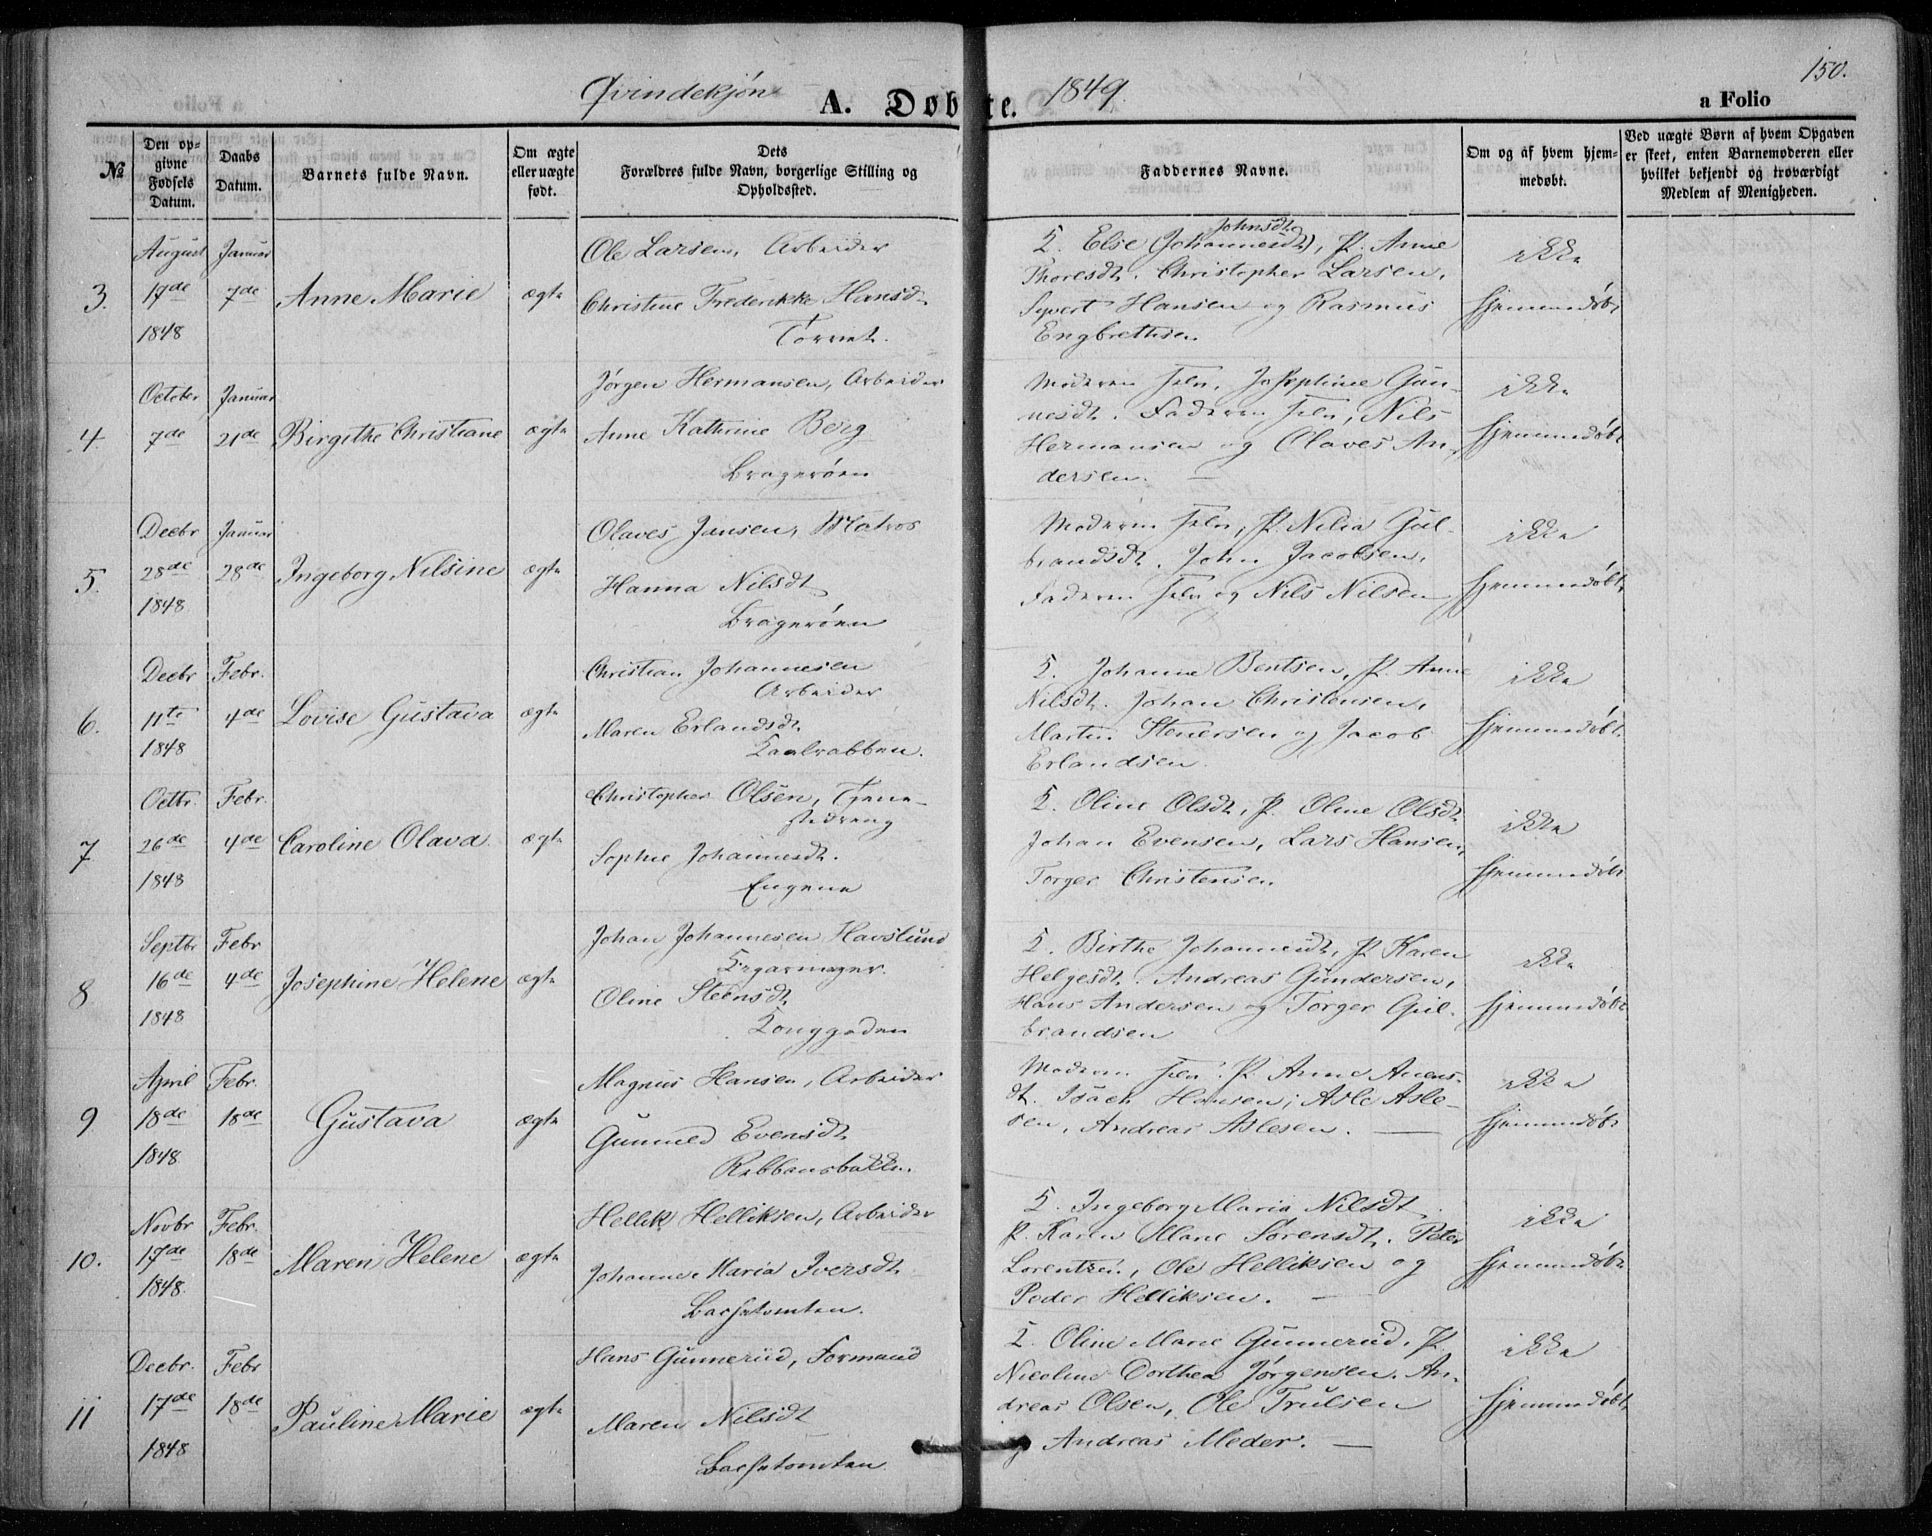 Qvindekjøn A. Døbte. 1849. a Folio 150.
№
Den opgivne Fødsels Datum.
Daabs Datum.
Barnets fulde Navn.
Om ægte eller uægte født.
Dets Forældres fulde Navn, borgerlige Stilling og Opholdssted.
Faddernes Navne.
Om og af hvem hjemmedøbt.
Ved uægte Børn af hvem Opgaven er skeet, enten Barnemoderen eller hvilket bekjendt og troværdigt Medlem af Menigheden.
3.
August 19de 1848
Januar 7de
Anne Marie
ægte
Ole Larsen, Arbeider
Christine Frederikke Hansd.
Torvet.
Johnsdt.
Q. Else (Johannesdt), P. Anne
Thoresdt. Christopher Larsen,
Syvert Hansen og Rasmus
Engbrethsen.
ikke
hjemmedøbt
4.
October 7de
Januar 21de
Birgithe Christiane
ægte
Jørgen Hermansen, Arbeider
Anne Kathrine Berg
Bragerøen
Moderen selv, Josephine Gun-
nesdt. Faderen selv, Nils
Hermansen og Olaves An-
dersen. —
ikke
hjemmedøbt
5.
Decbr 28de 1848
Januar 28de
Ingeborg Nilsine
ægte
Olaves Jansen, Matros
Hanna Nilsdt.
Bragerøen
Moderen selv, P. Nilia Gul-
brandsdt. John Jacobsen,
Faderen selv og Nils Nilsen
ikke
hjemmedøbt
6.
Decbr 11te 1848
Febr. 4de
Lovise Gustava
ægte
Christian Johannesen
Arbeider
Maren Erlandsdt.
Kaalrabben.
Q. Johanne Bentsen, P. Anne
Nilsdt. Johan Christensen,
Martin Stenersen og Jacob
Erlandsen.
ikke
hjemmedøbt
7
Octbr. 26de 1848
Febr. 4de
Caroline Olava
ægte
Christopher Olsen, Tjene-
stedreng
Sophie Johannesdt.
Engene
Q. Oline Olsdt, P. Oline Olsdt
Johan Evensen, Lars Hansen,
Torger Christensen
ikke
hjemmedøbt
8
Septbr 16de 1848
Febr 4de
Josephine Helene
ægte
Johan Johannesen Havslund
Cigarmager.
Oline Steensdt
Konggaden
Q. Birthe Johannesdt, P. Karen
Helgesdt. Andreas Gundersen,
Hans Andersen og Torger Gul-
brandsen
ikke
hjemmedøbt
9
April 18de 1848
Febr. 18de
Gustava
ægte
Magnus Hansen, Arbeider
Gunnild Evensdt
Rabbensbakke.
Moderen selv. P. Anne Anens-
dt. Isach Hansen, Asle Asle-
sen, Andreas Aslesen. —
ikke
hjemmedøbt
10.
Novbr 17de 1848.
Febr. 18de
Maren Helene
ægte
Hellik Helliksen, Arbeider
Johanne Maria Iversdt
Bachetomten.
Q. Ingeborg Maria Nilsdt
P. Karen Marie Sørensdt. Peter
Lorentzen, Ole Helliksen og
Peder Helliksen. —
ikke
hjemmedøbt
11
Decbr. 17de 1848
Febr 18de
Pauline Marie
ægte
Hans Gunnerud, Formand
Maren Nilsdt
Bachetomten
Q. Oline Marie Gunnerud, P.
Nicoline Dorthea Jørgensen. An-
dreas Olsen, Ole Trulsen
og Andreas Meder. —
ikke
hjemmedøbt